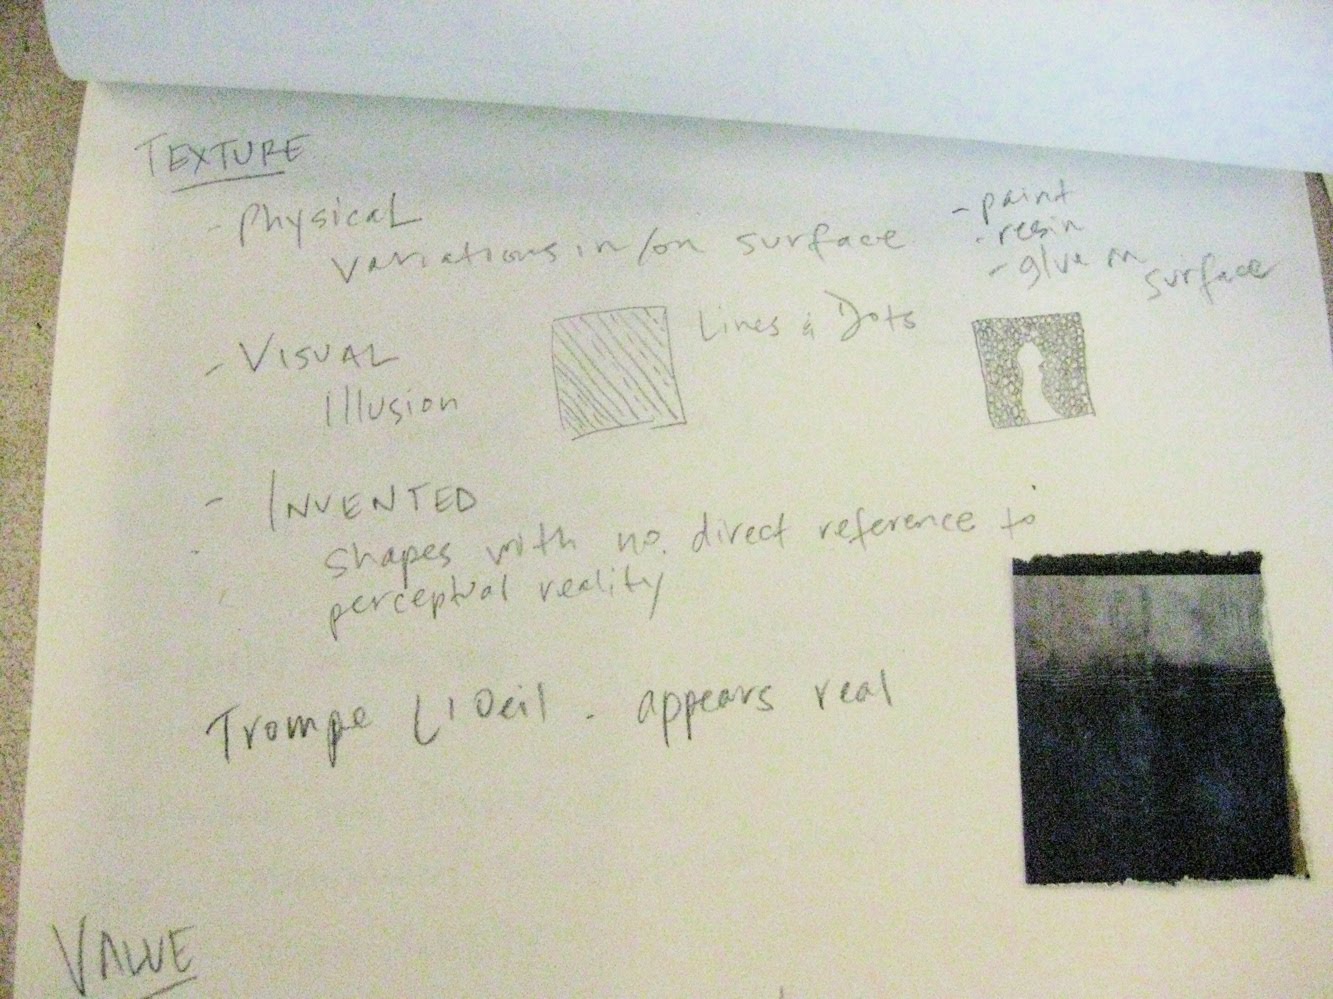 TEXTURE
- Physical
variations in/on surface
- paint
- resin
- glue on surface
- VISUAL
Illusion
Lines & Dots
- INVENTED
shapes with no direct reference to
perceptual reality
Trompe L'Oeil - appears real
VALUE